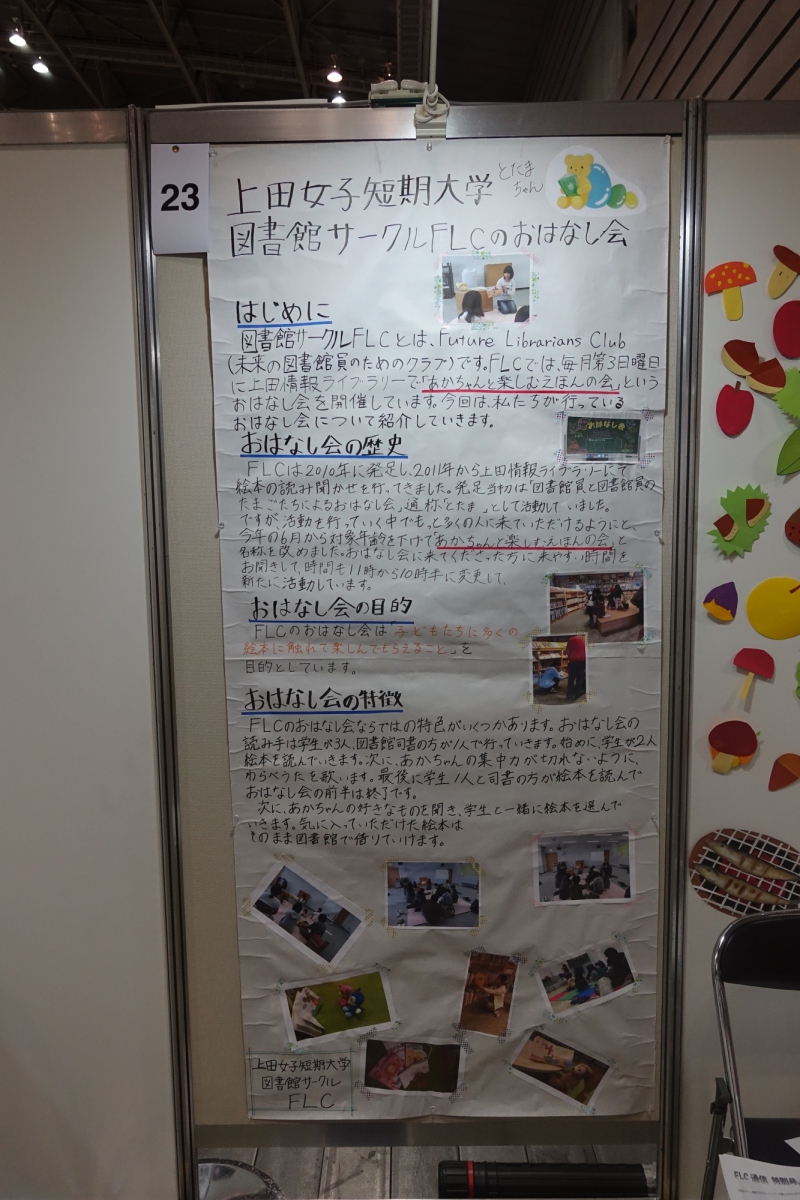 23
上田女子短期大学
とたま
ちゃん
図書館サークルFLCのおはなし会
はじめに
図書館サークルFLCとは、Future Librarians Club
(未来の図書館員のためのクラブ)です。FLCでは、毎月第3日曜日
に上田情報ライブラリーで「あかちゃんと楽しむえほんの会」という
おはなし会を開催しています。今回は、私たちが行っている
おはなし会について紹介していきます。
おはなし会
おはなし会の歴史
FLCは2010年に発足し、2011年から上田情報ライブラリーにて
絵本の読み聞かせを行ってきました。発足当初は「図書館員と図書館員の
たまごたちによるおはなし会」、通称“とたま”として活動していました。
ですが、活動を行っていく中でもっと多くの人に来ていただけるようにと、
今年の6月から対象年齢を下げて「あかちゃんと楽しむえほんの会」と
名称を改めました。おはなし会に来てくださった方に来やすい時間を
お聞きして、時間も11時から10時半に変更して、
新たに活動しています。
おはなし会の目的
FLCのおはなし会は「子どもたちに多くの
絵本に触れて楽しんでもらえること」を
目的としています。
おはなし会の特徴
FLCのおはなし会ならではの特色がいくつかあります。おはなし会の
読み手は学生が3人、図書館司書の方が1人で行っていきます。始めに、学生が2人
絵本を読んでいきます。次に、あかちゃんの集中力が切れないように、
わらべうたを歌います。最後に学生1人と司書の方が絵本を読んで
おはなし会の前半は終了です。
次に、あかちゃんの好きなものを聞き、学生と一緒に絵本を選んで
いきます。気に入っていただけた絵本は
そのまま図書館で借りていけます。
上田女子短期大学
図書館サークル
FLC
FLC通信